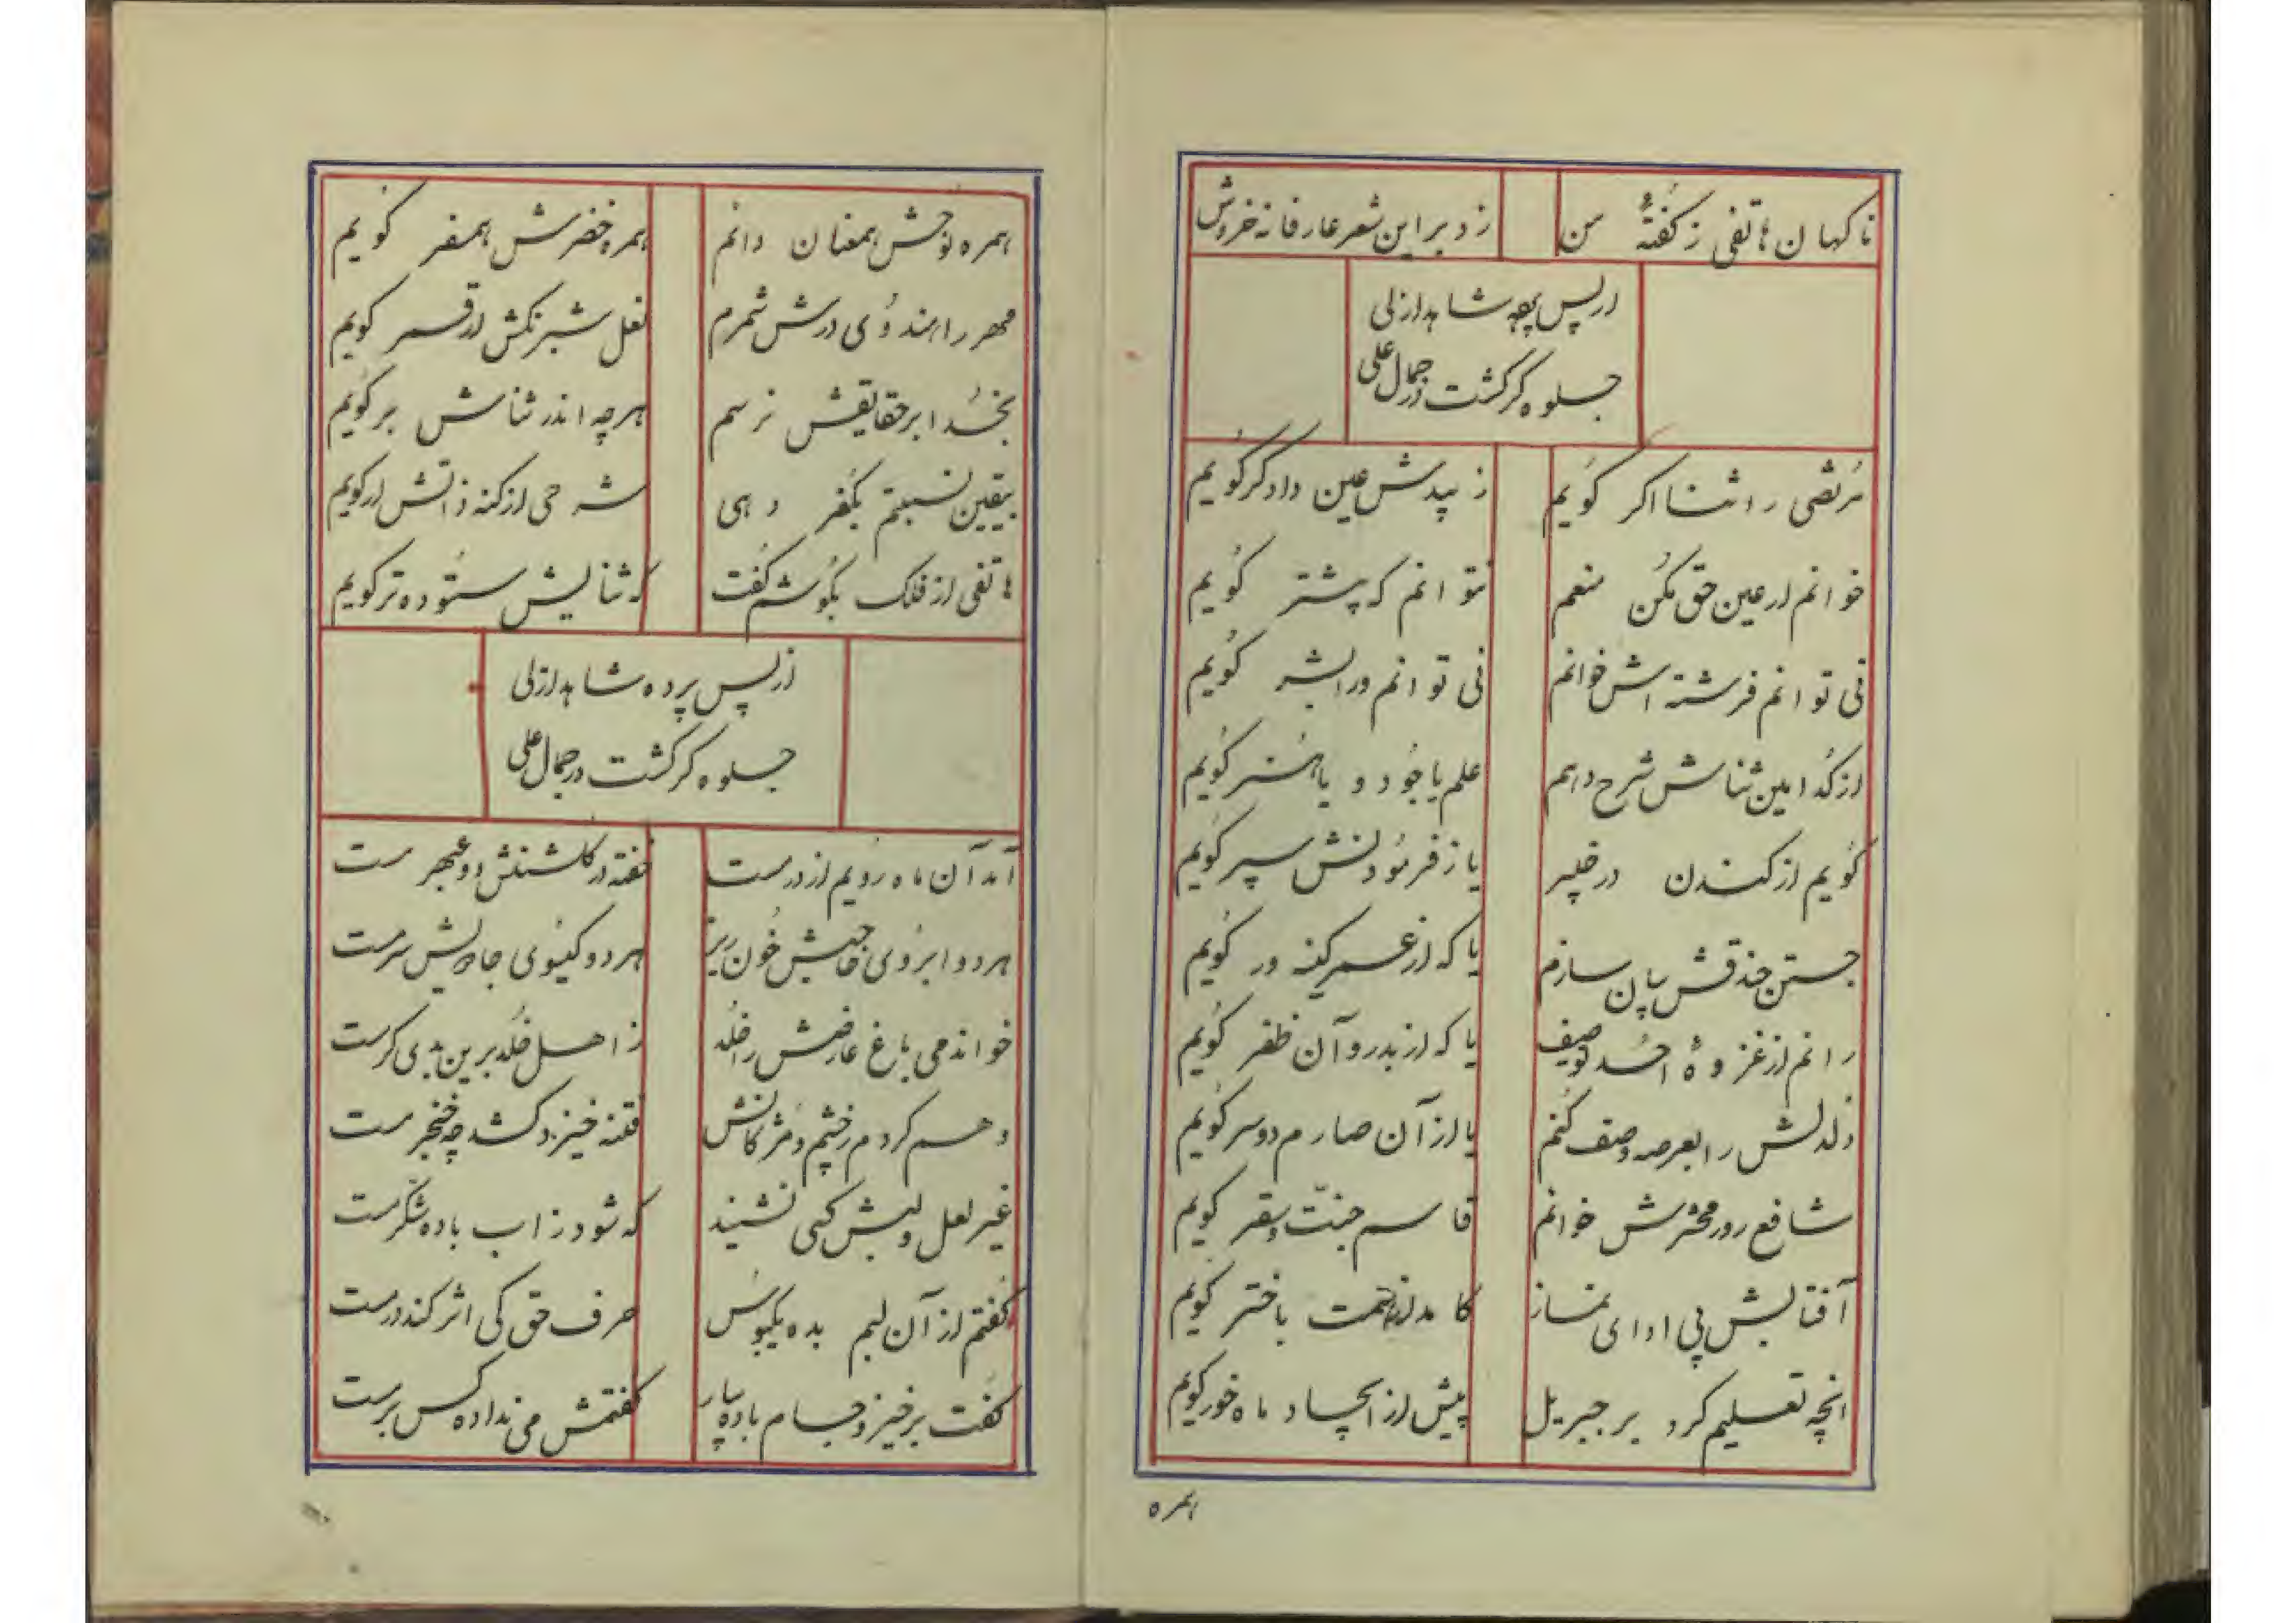 ناکهان هاتفی ز کفتهٔ من زد بر این شعر عارفانه خروش
از پس پرده شاهد ازلی
جلوه کر کشت در جمال علی
مرتضی را ثنا اکر کویم زیبدش عین دادکر کویم
خوانم ار عین حق مکن منعم نتوانم که پیشتر کویم
نی توانم فرشته اش خوانم نی توانم ورا بشر کویم
از کدامین ثناش شرح دهم علم یا جود و یا هنر کویم
کویم از کندن در خیبر یا ز فرمودنش سپر کویم
جستن خندقش بیان سازم یا که از عمر کینه ور کویم
رانم از غزوهٔ احد توصیف یا که از بدر و آن ظفر کویم
دلدلش را بعرصه وصف کنم یا از آن صارم دوسر کویم
شافع روز محشرش خوانم قاسم جنّت و سقر کویم
آفتابش پی ادای نماز کامد از باختر کویم
انچه تعلیم کرد بر جبریل پیش از ایجاد ماه خور کویم
همره
همره نوحش همعنان دانم همره خضرش همسفر کویم
مهر را هندوی درش شمرم نعل شبرنکش از قمر کویم
بخدا بر حقایقش نرسم هرچه اندر ثناش بر کویم
بیقین نسبتم بکفر دهی شرحی از کنه ذاتش ار کویم
هاتفی از فلک بکوشم کفت که ثنایش ستوده تر کویم
از پس پرده شاهد ازلی
جلوه کر کشت در جمال علی
آمد آن ماه رویم از در مست خفته در کلشنش دو عبهر مست
هر دو ابروی حاجبش خون ریز هر دو کیسوی جادویش سرمست
خواندمی باغ عارضش را خلد ز اهل خلد برین بدی کر مست
وهم کردم ز چشم و مژکانش فتنه خیزد کشد چه خنجر مست
غیر لعل لبش کسی نشنید که شود ز اب باده شکر مست
کفتم از آن لبم بده یکبوس حرف حق کی اثر کند در مست
کفت برخیز و جام باده بیار کفتمش می نداده کس بر مست